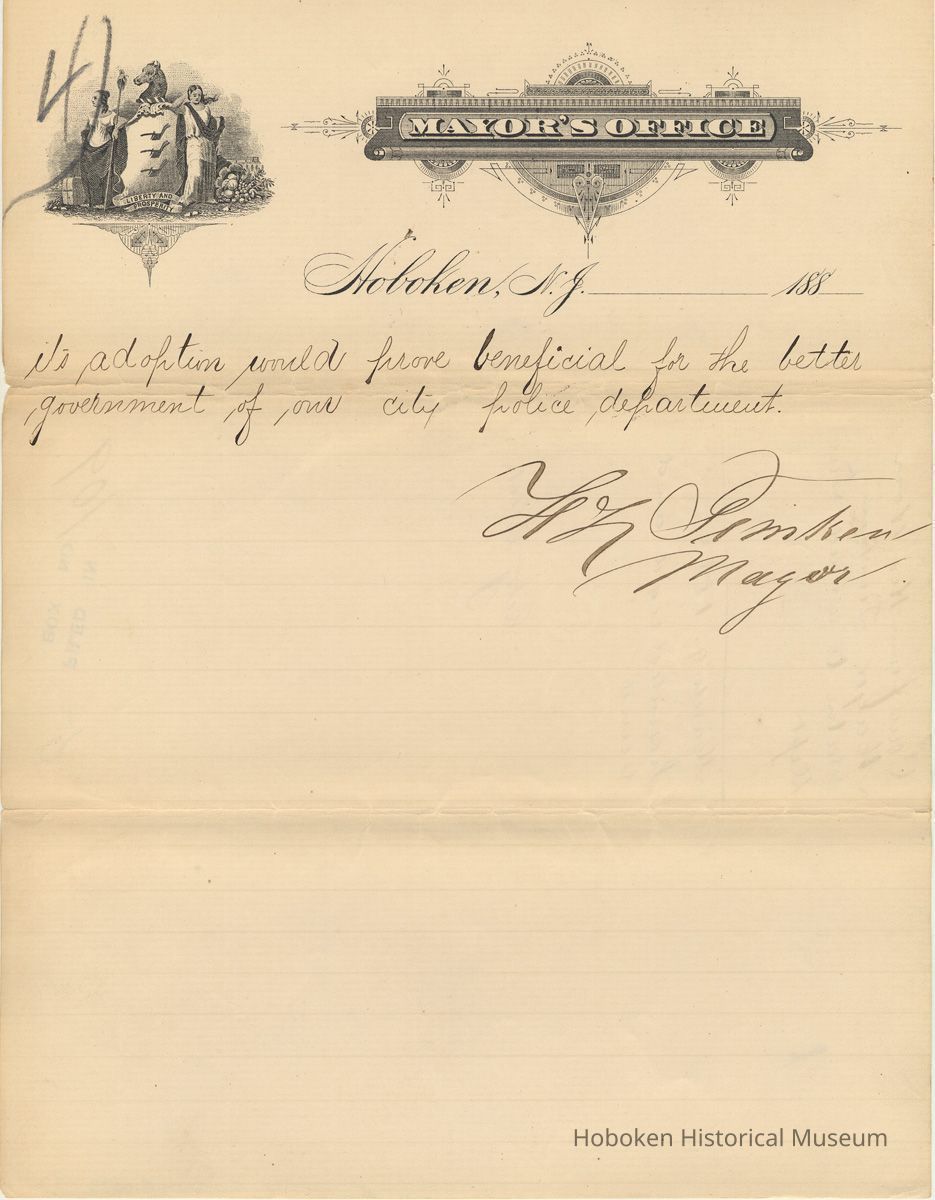 4)
LIBERTY AND
PROSPERITY
MAYOR'S OFFICE
Hoboken, N.J. 188
it's adoption would prove beneficial for the better
government of our city police department.
H L Timken
Mayor.
Hoboken Historical Museum